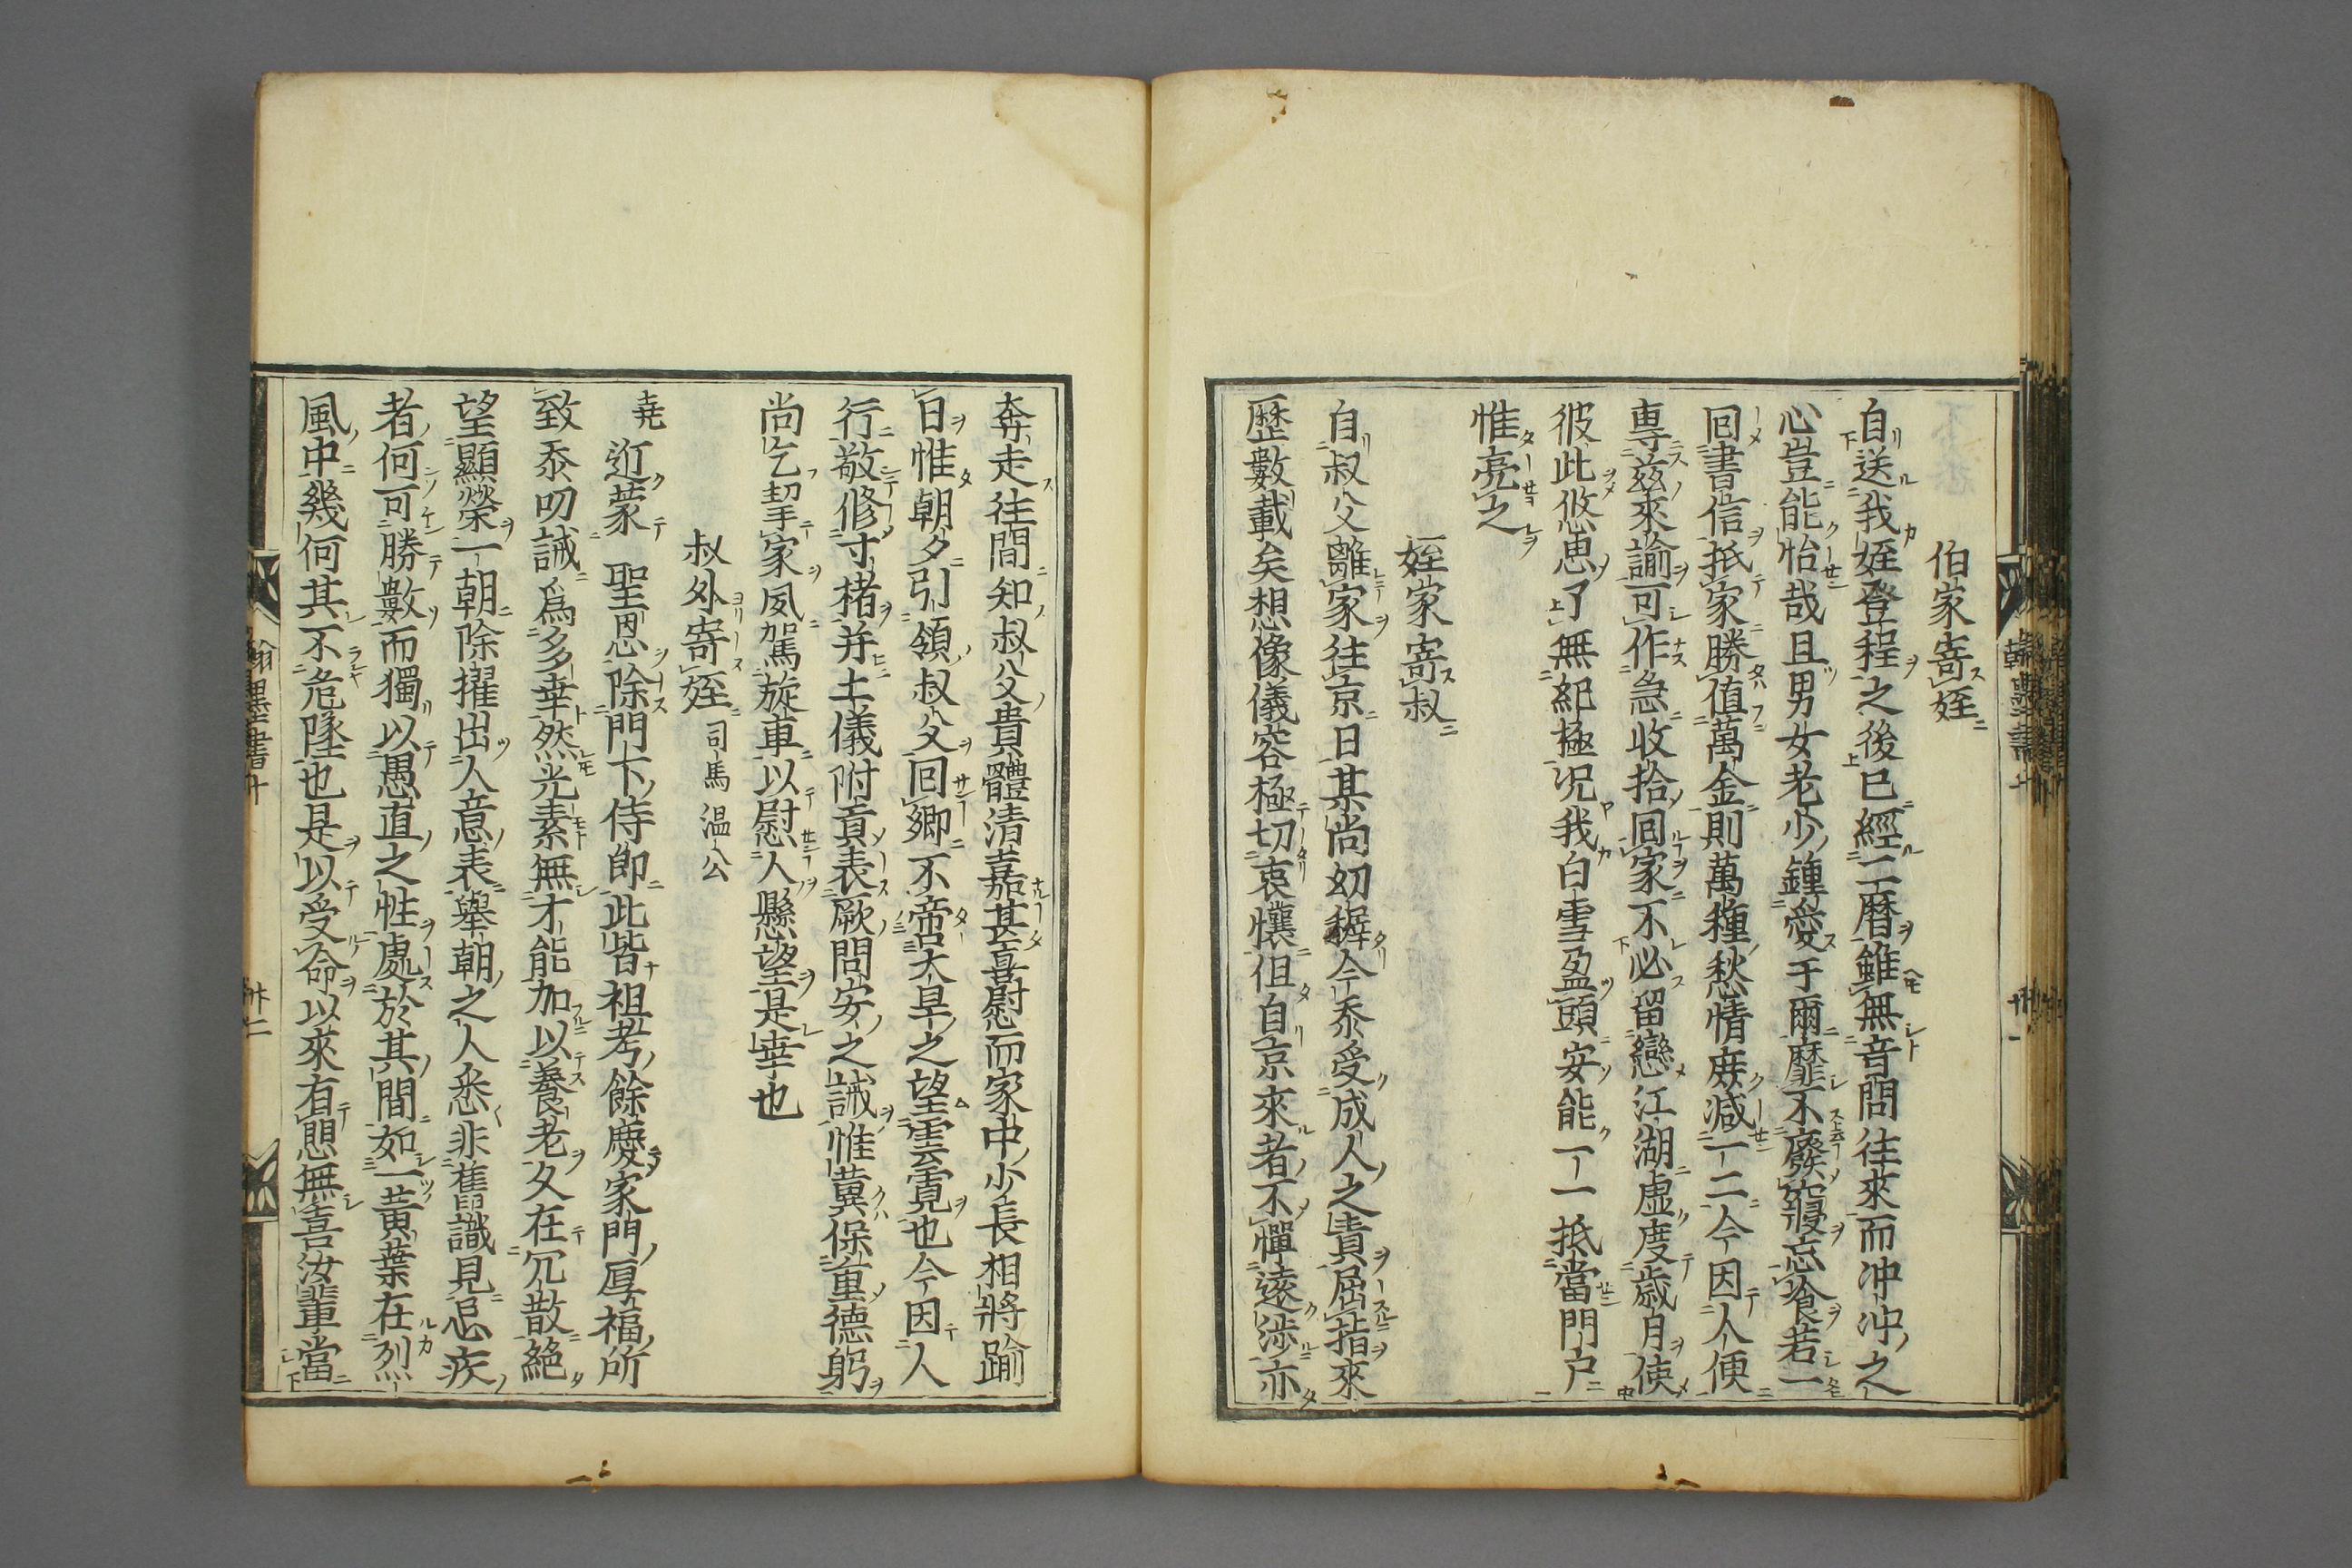 伯家寄姪
自送我姪登程之後已經一曆雖無音問往來而冲冲之
心豈能怡哉且男女老少鍾愛于爾靡不廢寢忘飡若一
回書信抵家勝值萬金則萬種愁情庶減一二今因人便
專茲來諭可作急收拾回家不必留戀江湖虛度歲月使
彼此悠思了無紀極况我白雪盈頭安能一一抵當門户
惟亮之
姪家寄叔
自叔父離家往京日某尚幼穉今忝受成人之責屈指來
歷數載矣想像儀容極切衷懷但自京來者不憚遠涉亦
奔走往間知叔父貴體清嘉甚喜慰而家中少長相將踰
日惟朝夕引領叔父回鄉不啻大旱之望雲霓也今因人
行敬修寸楮并土儀附貢表厥問安之誠惟冀保重德躬
尚乞挈家夙駕旋車以慰人懸望是幸也
叔外寄姪 司馬溫公
堯
近蒙 聖恩除門下侍郎此皆祖考餘慶家門厚福所
致忝叨誠爲多幸然光素無才能加以養老久在冗散絕
望顯榮一朝除擢出人意表舉朝之人悉非舊識見忌疾
者何可勝數而獨以愚直之性處於其間如一黃葉在烈
風中幾何其不危墜也是以受命以來有懼無喜汝輩當
翰墨書十
卅二